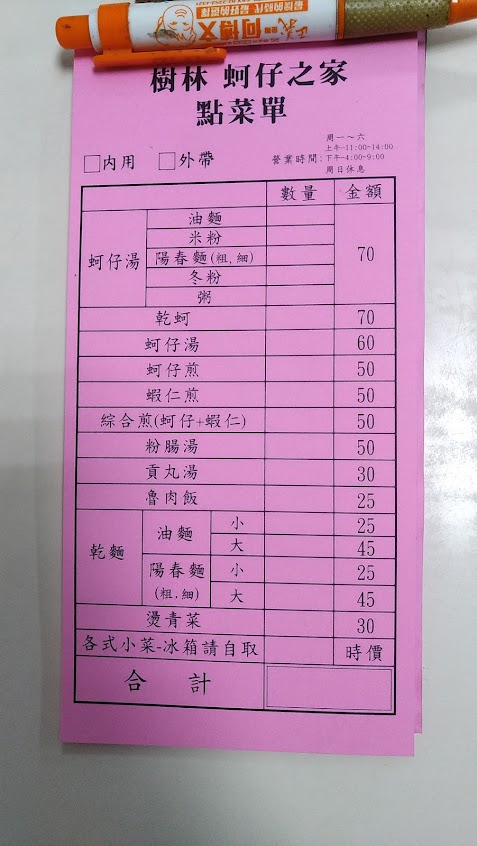 何博文
樹林 蚵仔之家
點菜單
□內用 □外帶
營業時間:
周一～六
上午-11:00~14:00
下午-4:00~9:00
周日休息
數量 金額
蚵仔湯 70
油麵
米粉
陽春麵(粗,細)
冬粉
粥
乾蚵 70
蚵仔湯 60
蚵仔煎 50
蝦仁煎 50
綜合煎(蚵仔+蝦仁) 50
粉腸湯 50
貢丸湯 30
魯肉飯 25
乾麵
油麵 小 25
大 45
陽春麵(粗,細) 小 25
大 45
燙青菜 30
各式小菜-冰箱請自取 時價
合 計